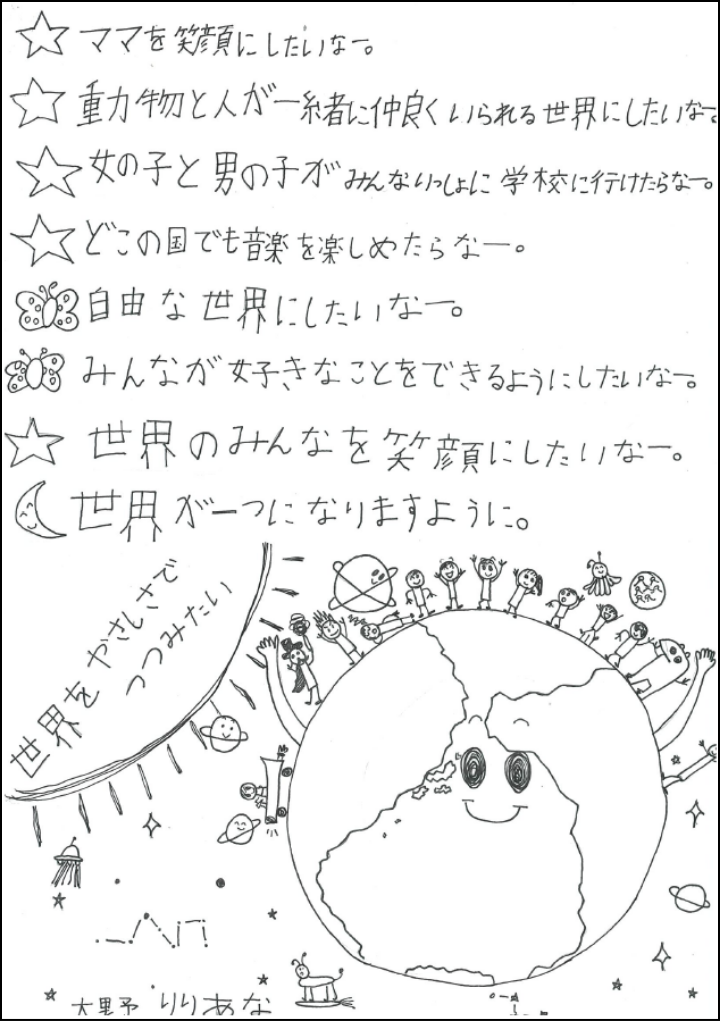 ママを笑顔にしたいなー。
動物と人が一緒に仲良くいられる世界にしたいなー。
女の子と男の子がみんないっしょに学校に行けたらなー。
どこの国でも音楽を楽しめたらなー。
自由な世界にしたいなー。
みんなが好きなことをできるようにしたいなー。
世界のみんなを笑顔にしたいなー。
世界が一つになりますように。
世界をやさしさで
つつみたい
大野 りりあな